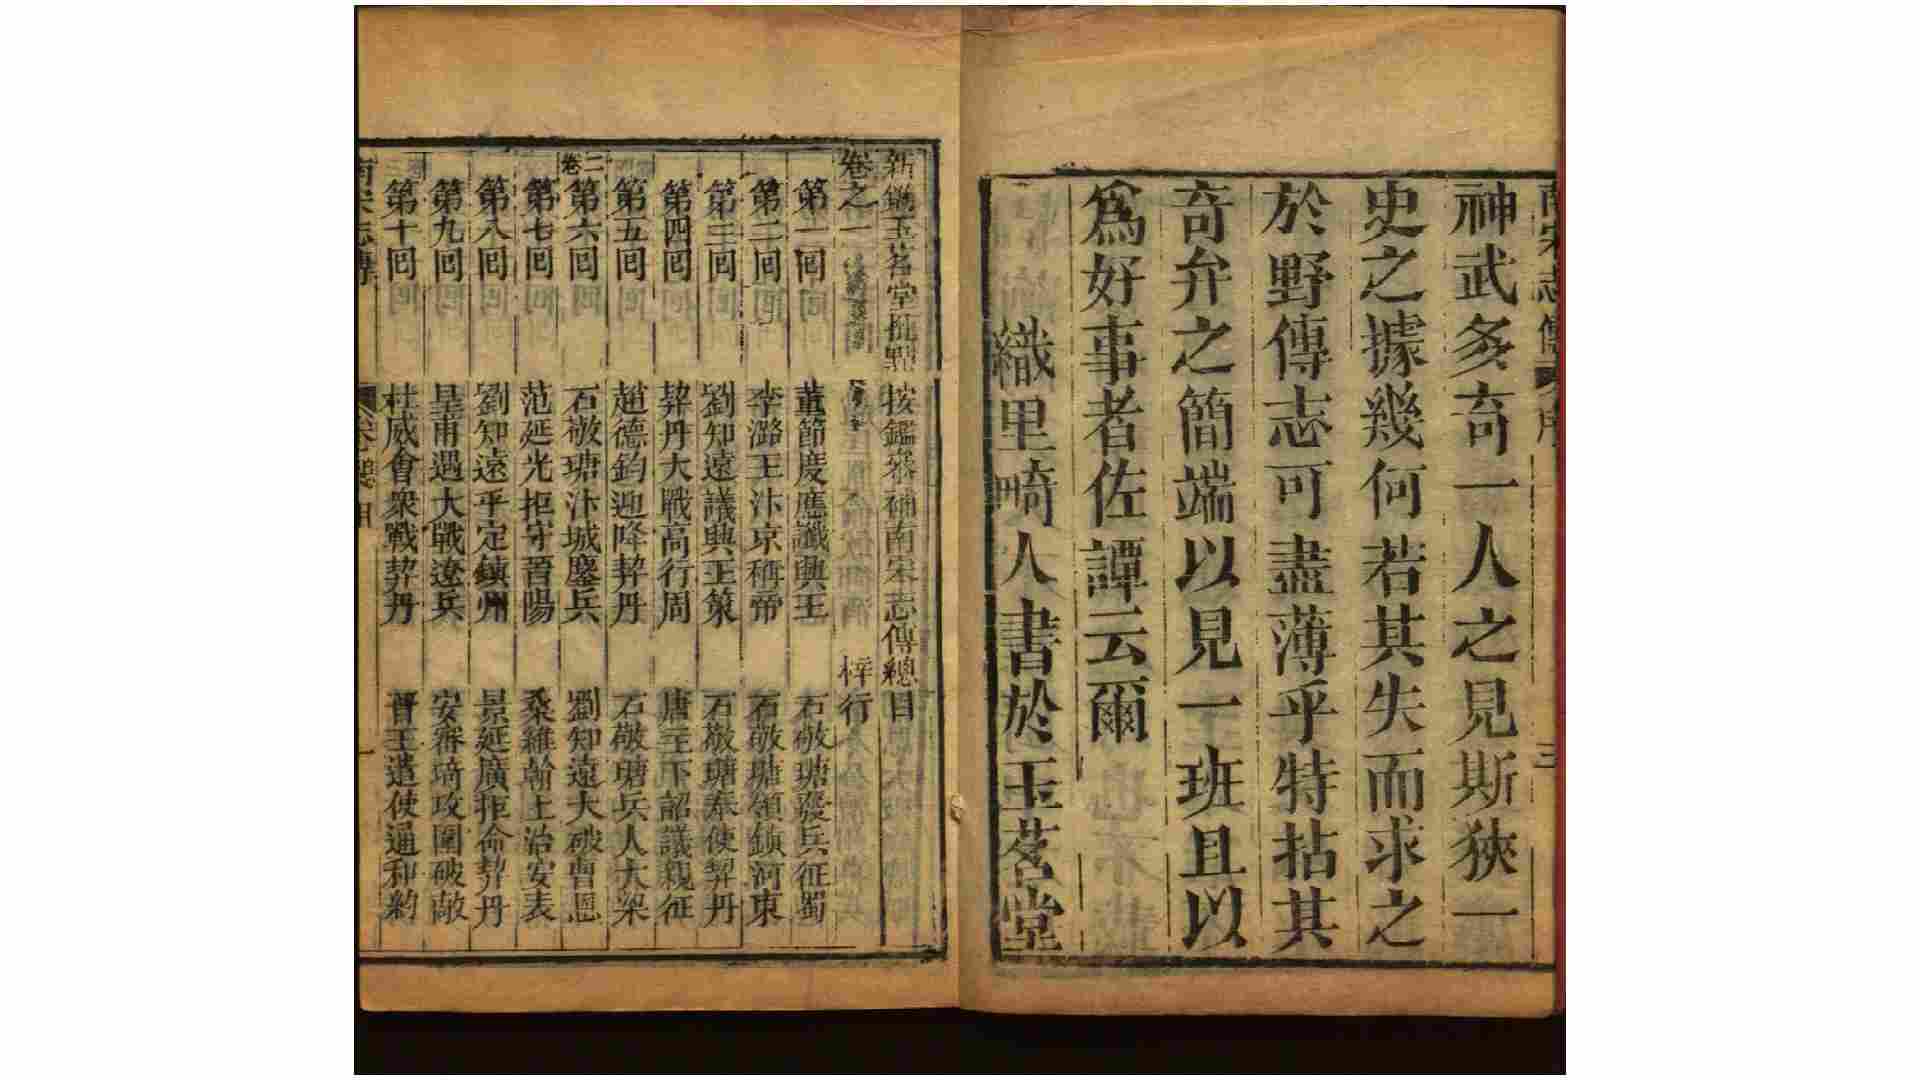 南宋志傳 序 三
神武多奇一人之見斯狹一
史之據幾何若其失而求之
於野傳志可盡薄乎特拈其
奇弁之簡端以見一班且以
爲好事者佐譚云爾
織里畸人書於玉茗堂
新鐫玉茗堂批點按鑑參補南宋志傳總目
卷之一 梓行
第一回 董節度應讖興王 石敬瑭發兵征蜀
第二回 李潞王汴京稱帝 石敬瑭領鎮河東
第三回 劉知遠議興王策 石敬瑭奉使契丹
第四回 契丹大戰高行周 唐主下詔議親征
第五回 趙德鈞迎降契丹 石敬瑭兵入大梁
二卷
第六回 石敬瑭汴城鏖兵 劉知遠大破曹
第七回 范延光拒守晉陽 桑維翰上治安表
第八回 劉知遠平定鎮州 景延廣拒命契丹
第九回 皇甫遇大戰遼兵 安審琦攻圍破敵
第十回 杜威會衆戰契丹 晉王遣使通和約
南宋志傳 目 一